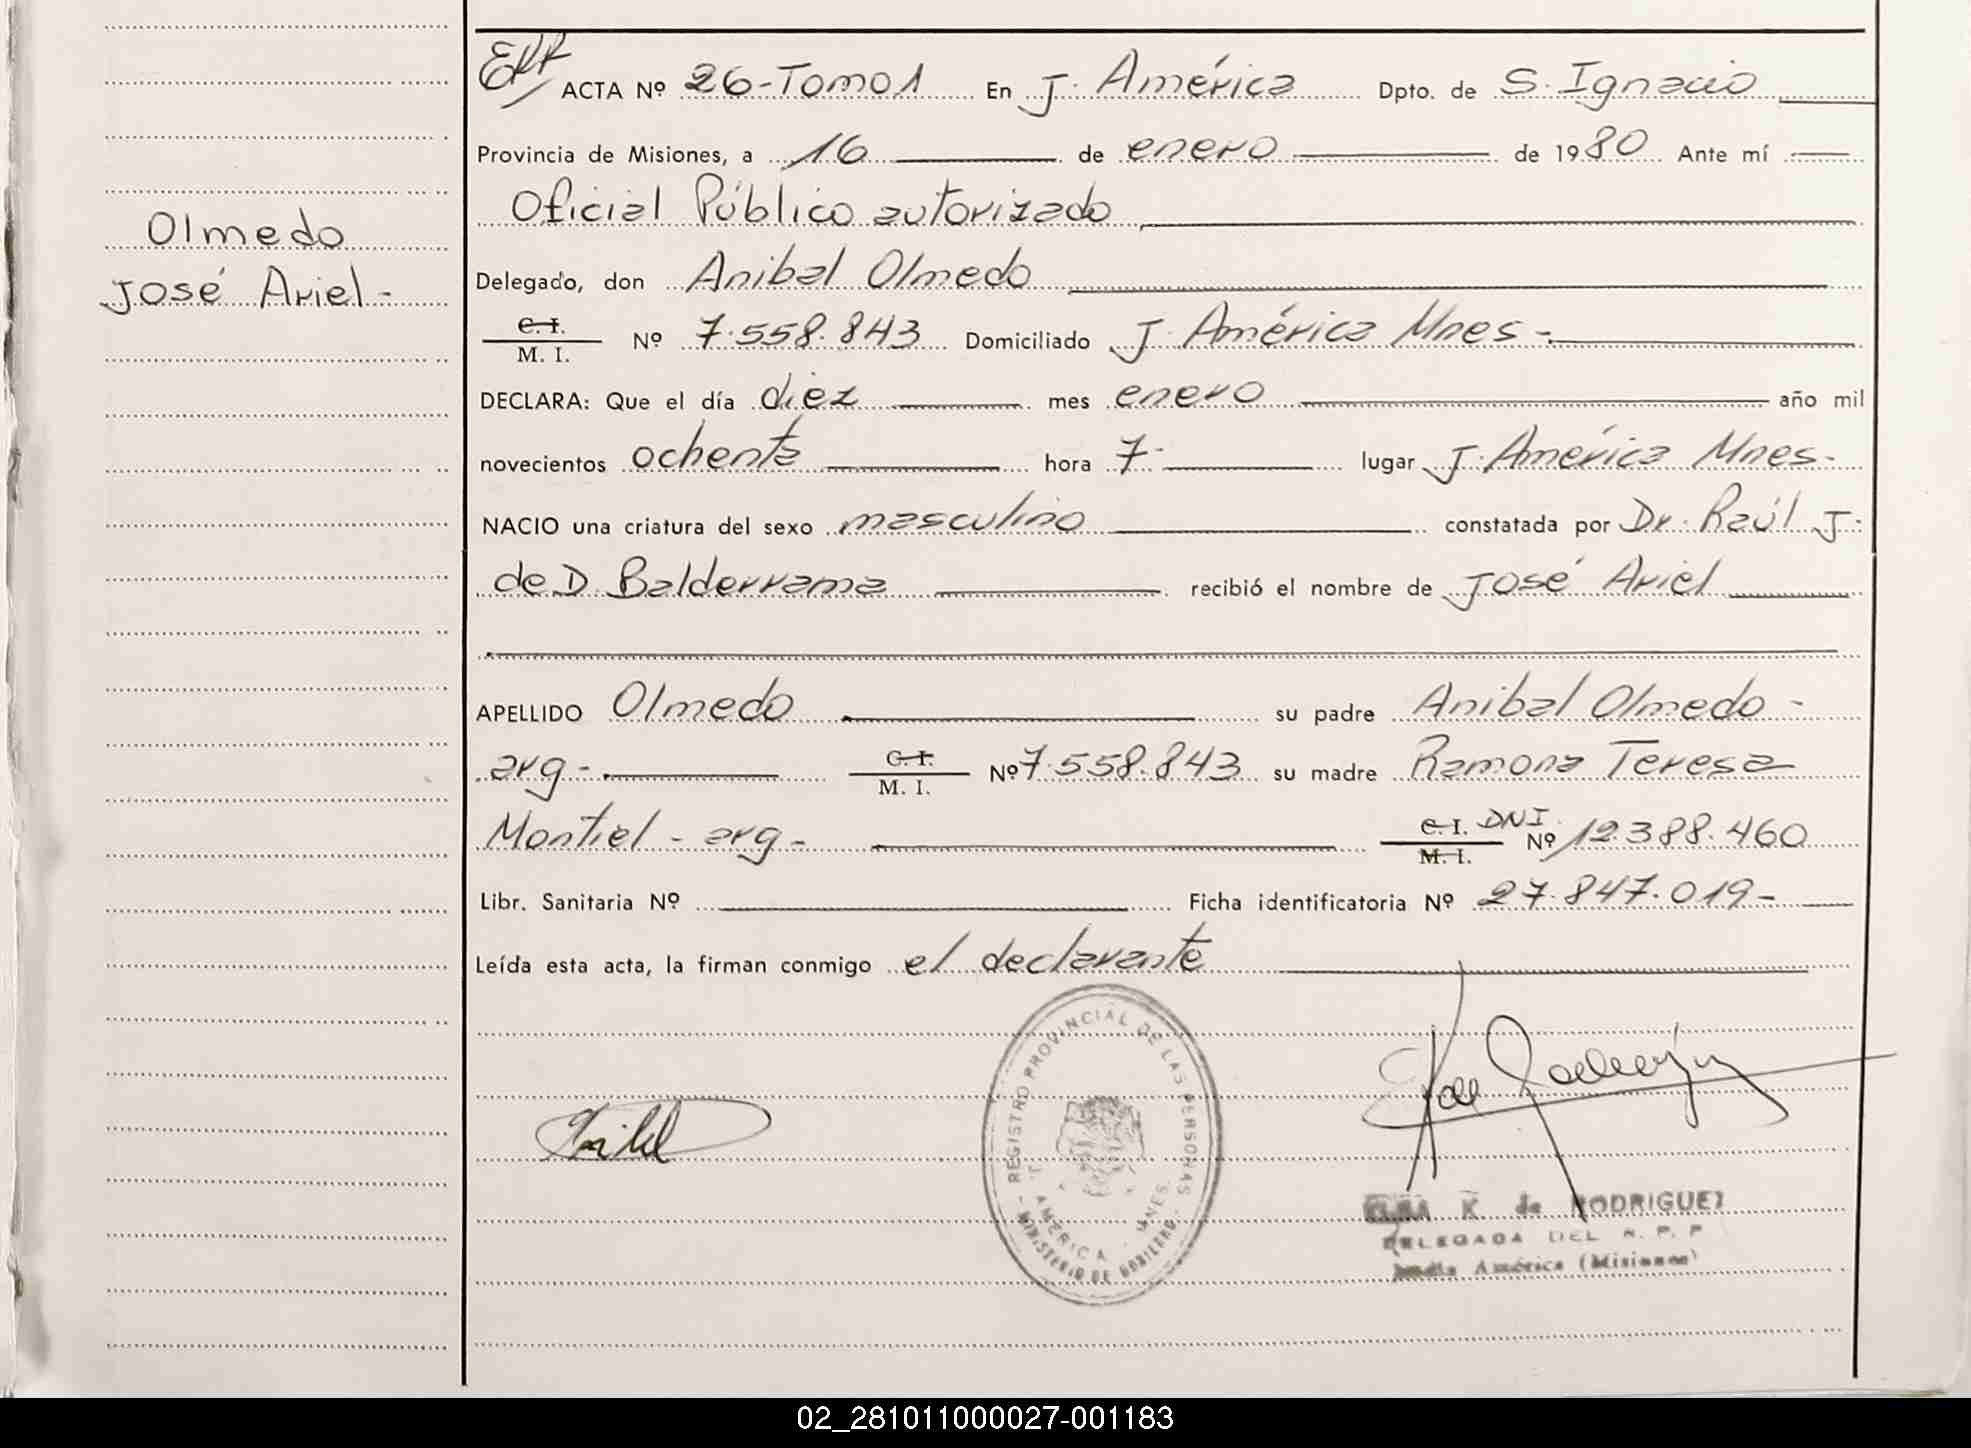 ACTA Nº 26-Tomo 1 En J. América Dpto. de S. Ignacio
Provincia de Misiones, a 16 de enero de 1980 Ante mí
Oficial Público autorizado
Olmedo
José Ariel-
Delegado, don Anibal Olmedo
C. I. M. I. Nº 7.558.843 Domiciliado J. América Mnes-
DECLARA: Que el día diez mes enero año mil
novecientos ochenta hora 7- lugar J. América Mnes-
NACIO una criatura del sexo masculino constatada por Dr. Raúl J.
de D. Balderrama recibió el nombre de José Ariel
APELLIDO Olmedo su padre Anibal Olmedo-
arg- C. I. M. I. Nº 7.558.843 su madre Ramona Teresa
Montiel-arg- C. I. M. I. DNI. Nº 12.388.460
Libr. Sanitaria Nº Ficha identificatoria Nº 27.847.019-
Leída esta acta, la firman conmigo el declarante
REGISTRO PROVINCIAL DE LAS PERSONAS
J. AMERICA - MNES.
MINISTERIO DE GOBIERNO
K de RODRIGUEZ
DELEGADA DEL R. P. P
América (Misiones)
02_281011000027-001183